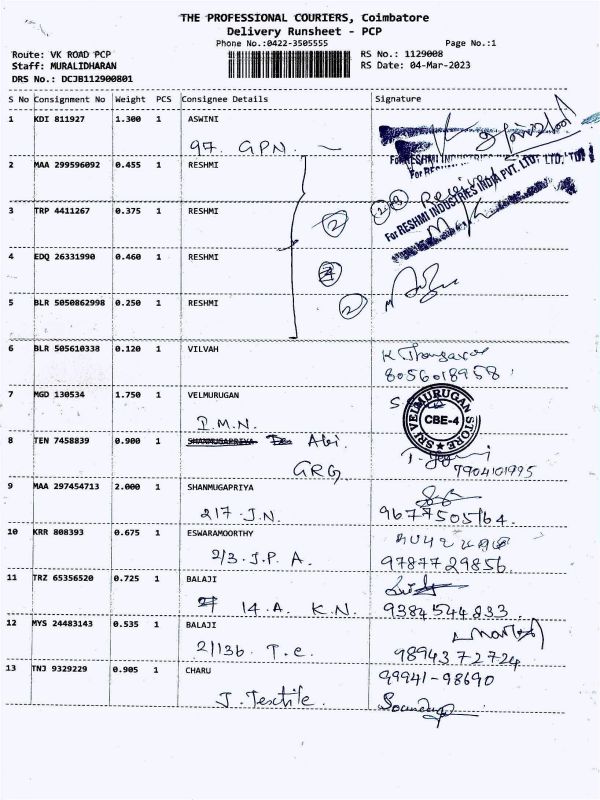 THE PROFESSIONAL COURIERS, Coimbatore
Delivery Runsheet - PCP
Phone No.:0422-3505555 Page No.:1
Route: VK ROAD PCP RS No.: 1129008
Staff: MURALIDHARAN RS Date: 04-Mar-2023
DRS No.: DCJB112900801
S No Consignment No Weight PCS Consignee Details Signature
1 KDI 811927 1.300 1 ASWINI
97. GPN.
2 MAA 299596092 0.455 1 RESHMI
For RESHMI INDUSTRIES INDIA PVT. LTD.
3 TRP 4411267 0.375 1 RESHMI
2
4 EDQ 26331990 0.460 1 RESHMI
5 BLR 5050862998 0.250 1 RESHMI
2
6 BLR 505610338 0.120 1 VILVAH
8056018958
7 MGD 130534 1.750 1 VELMURUGAN
SRI VELMURUGAN STORE
CBE-4
8 TEN 7458839 0.900 1 SHANMUGAPRIYA Abi
GRG 7904101995
9 MAA 297454713 2.000 1 SHANMUGAPRIYA
217. J.N. 9677505764.
10 KRR 808393 0.675 1 ESWARAMOORTHY
2/3. J.P. A. 9787729856
11 TRZ 65356520 0.725 1 BALAJI
14.A. K.N. 9384544833
12 MYS 24483143 0.535 1 BALAJI
2/136. T.C. 9894372724
13 TNJ 9329229 0.905 1 CHARU 99941-98690
J. Textile.